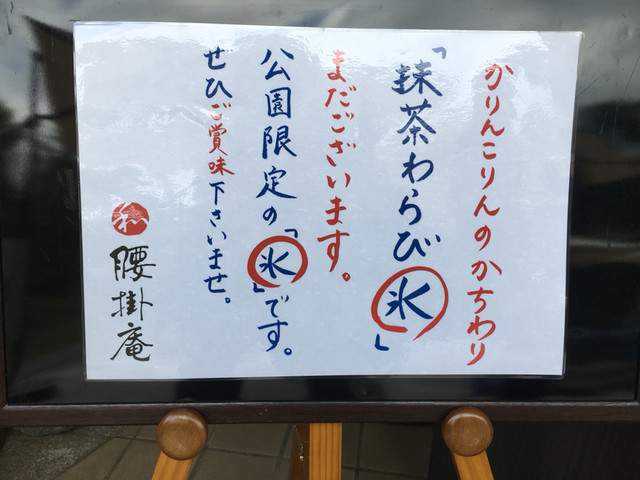 かりんこりんのかちわり
「抹茶わらび氷」
まだございます。
公園限定の「氷」です。
ぜひご賞味下さいませ。
腰掛庵